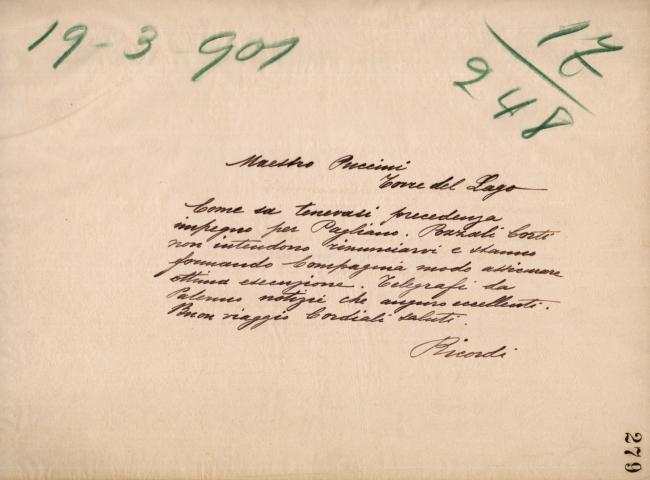 19-3-901
17
248
Maestro Puccini
Torre del Lago
Come sa tenevasi precedenza
impegno per Pagliano. Corti
non intendono rinunciarvi e stanno
formando Compagnia modo assicurare
ottima esecuzione. Telegrafi da
Palermo notizie che auguro eccellenti.
Buon viaggio Cordiali saluti.
Ricordi
279